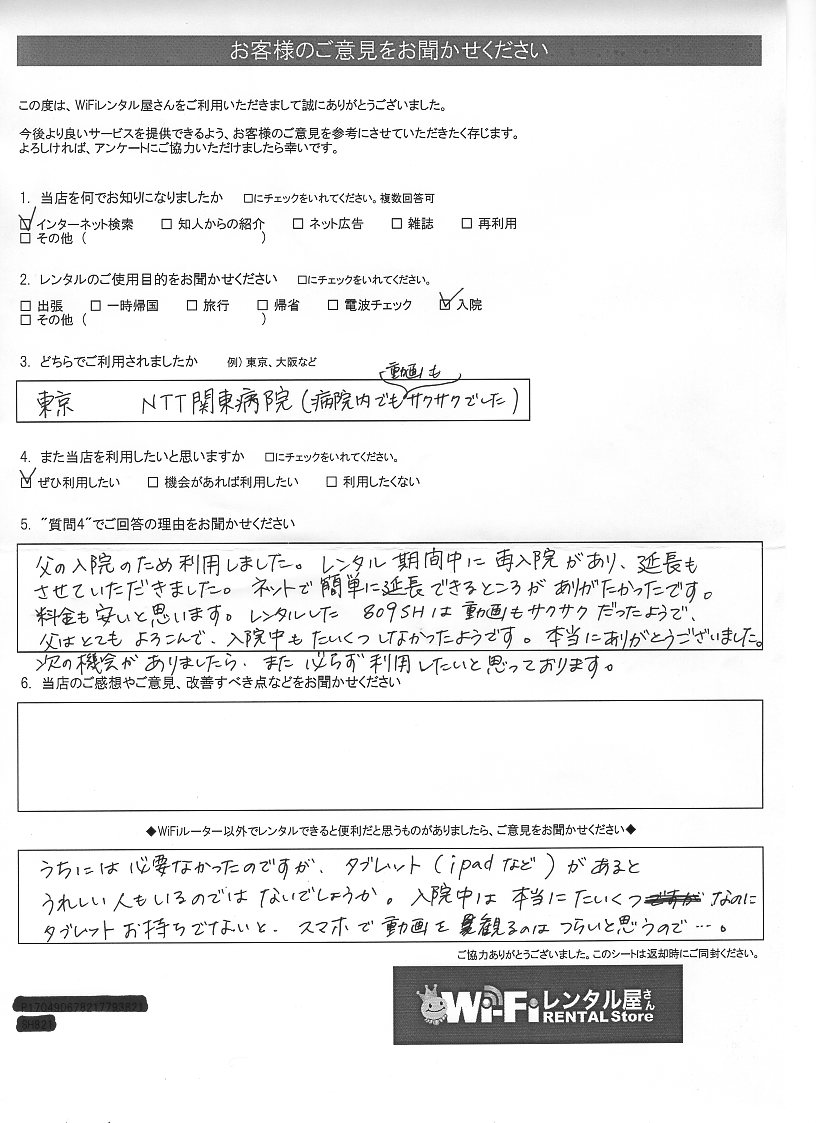 お客様のご意見をお聞かせください
この度は、WiFiレンタル屋さんをご利用いただきまして誠にありがとうございました。
今後より良いサービスを提供できるよう、お客様のご意見を参考にさせていただきたく存じます。
よろしければ、アンケートにご協力いただけましたら幸いです。
1. 当店を何でお知りになりましたか □にチェックをいれてください。複数回答可
☑ インターネット検索 □ 知人からの紹介 □ ネット広告 □ 雑誌 □ 再利用
□ その他 ( )
2. レンタルのご使用目的をお聞かせください □にチェックをいれてください。
□ 出張 □ 一時帰国 □ 旅行 □ 帰省 □ 電波チェック ☑ 入院
□ その他 ( )
3. どちらでご利用されましたか 例) 東京、大阪など
動画も
東京 NTT関東病院 (病院内でもサクサクでした)
4. また当店を利用したいと思いますか □にチェックをいれてください。
☑ ぜひ利用したい □ 機会があれば利用したい □ 利用したくない
5. "質問4"でご回答の理由をお聞かせください
父の入院のため利用しました。レンタル期間中に再入院があり、延長も
させていただきました。ネットで簡単に延長できるところがありがたかったです。
料金も安いと思います。レンタルした 809SHは動画もサクサクだったようで、
父はとてもよろこんで、入院中もたいくつしなかったようです。本当にありがとうございました。
次の機会がありましたら、また必らず利用したいと思っております。
6. 当店のご感想やご意見、改善すべき点などをお聞かせください
◆WiFiルーター以外でレンタルできると便利だと思うものがありましたら、ご意見をお聞かせください◆
うちには必要なかったのですが、タブレット (ipadなど) があると
うれしい人もいるのではないでしょうか。入院中は本当にたいくつですがなのに
タブレットお持ちでないと、スマホで動画を観るのはつらいと思うので…。
ご協力ありがとうございました。このシートは返却時にご同封ください。
R170490678217793821
SH821
Wi-Fiレンタル屋さん
RENTAL Store